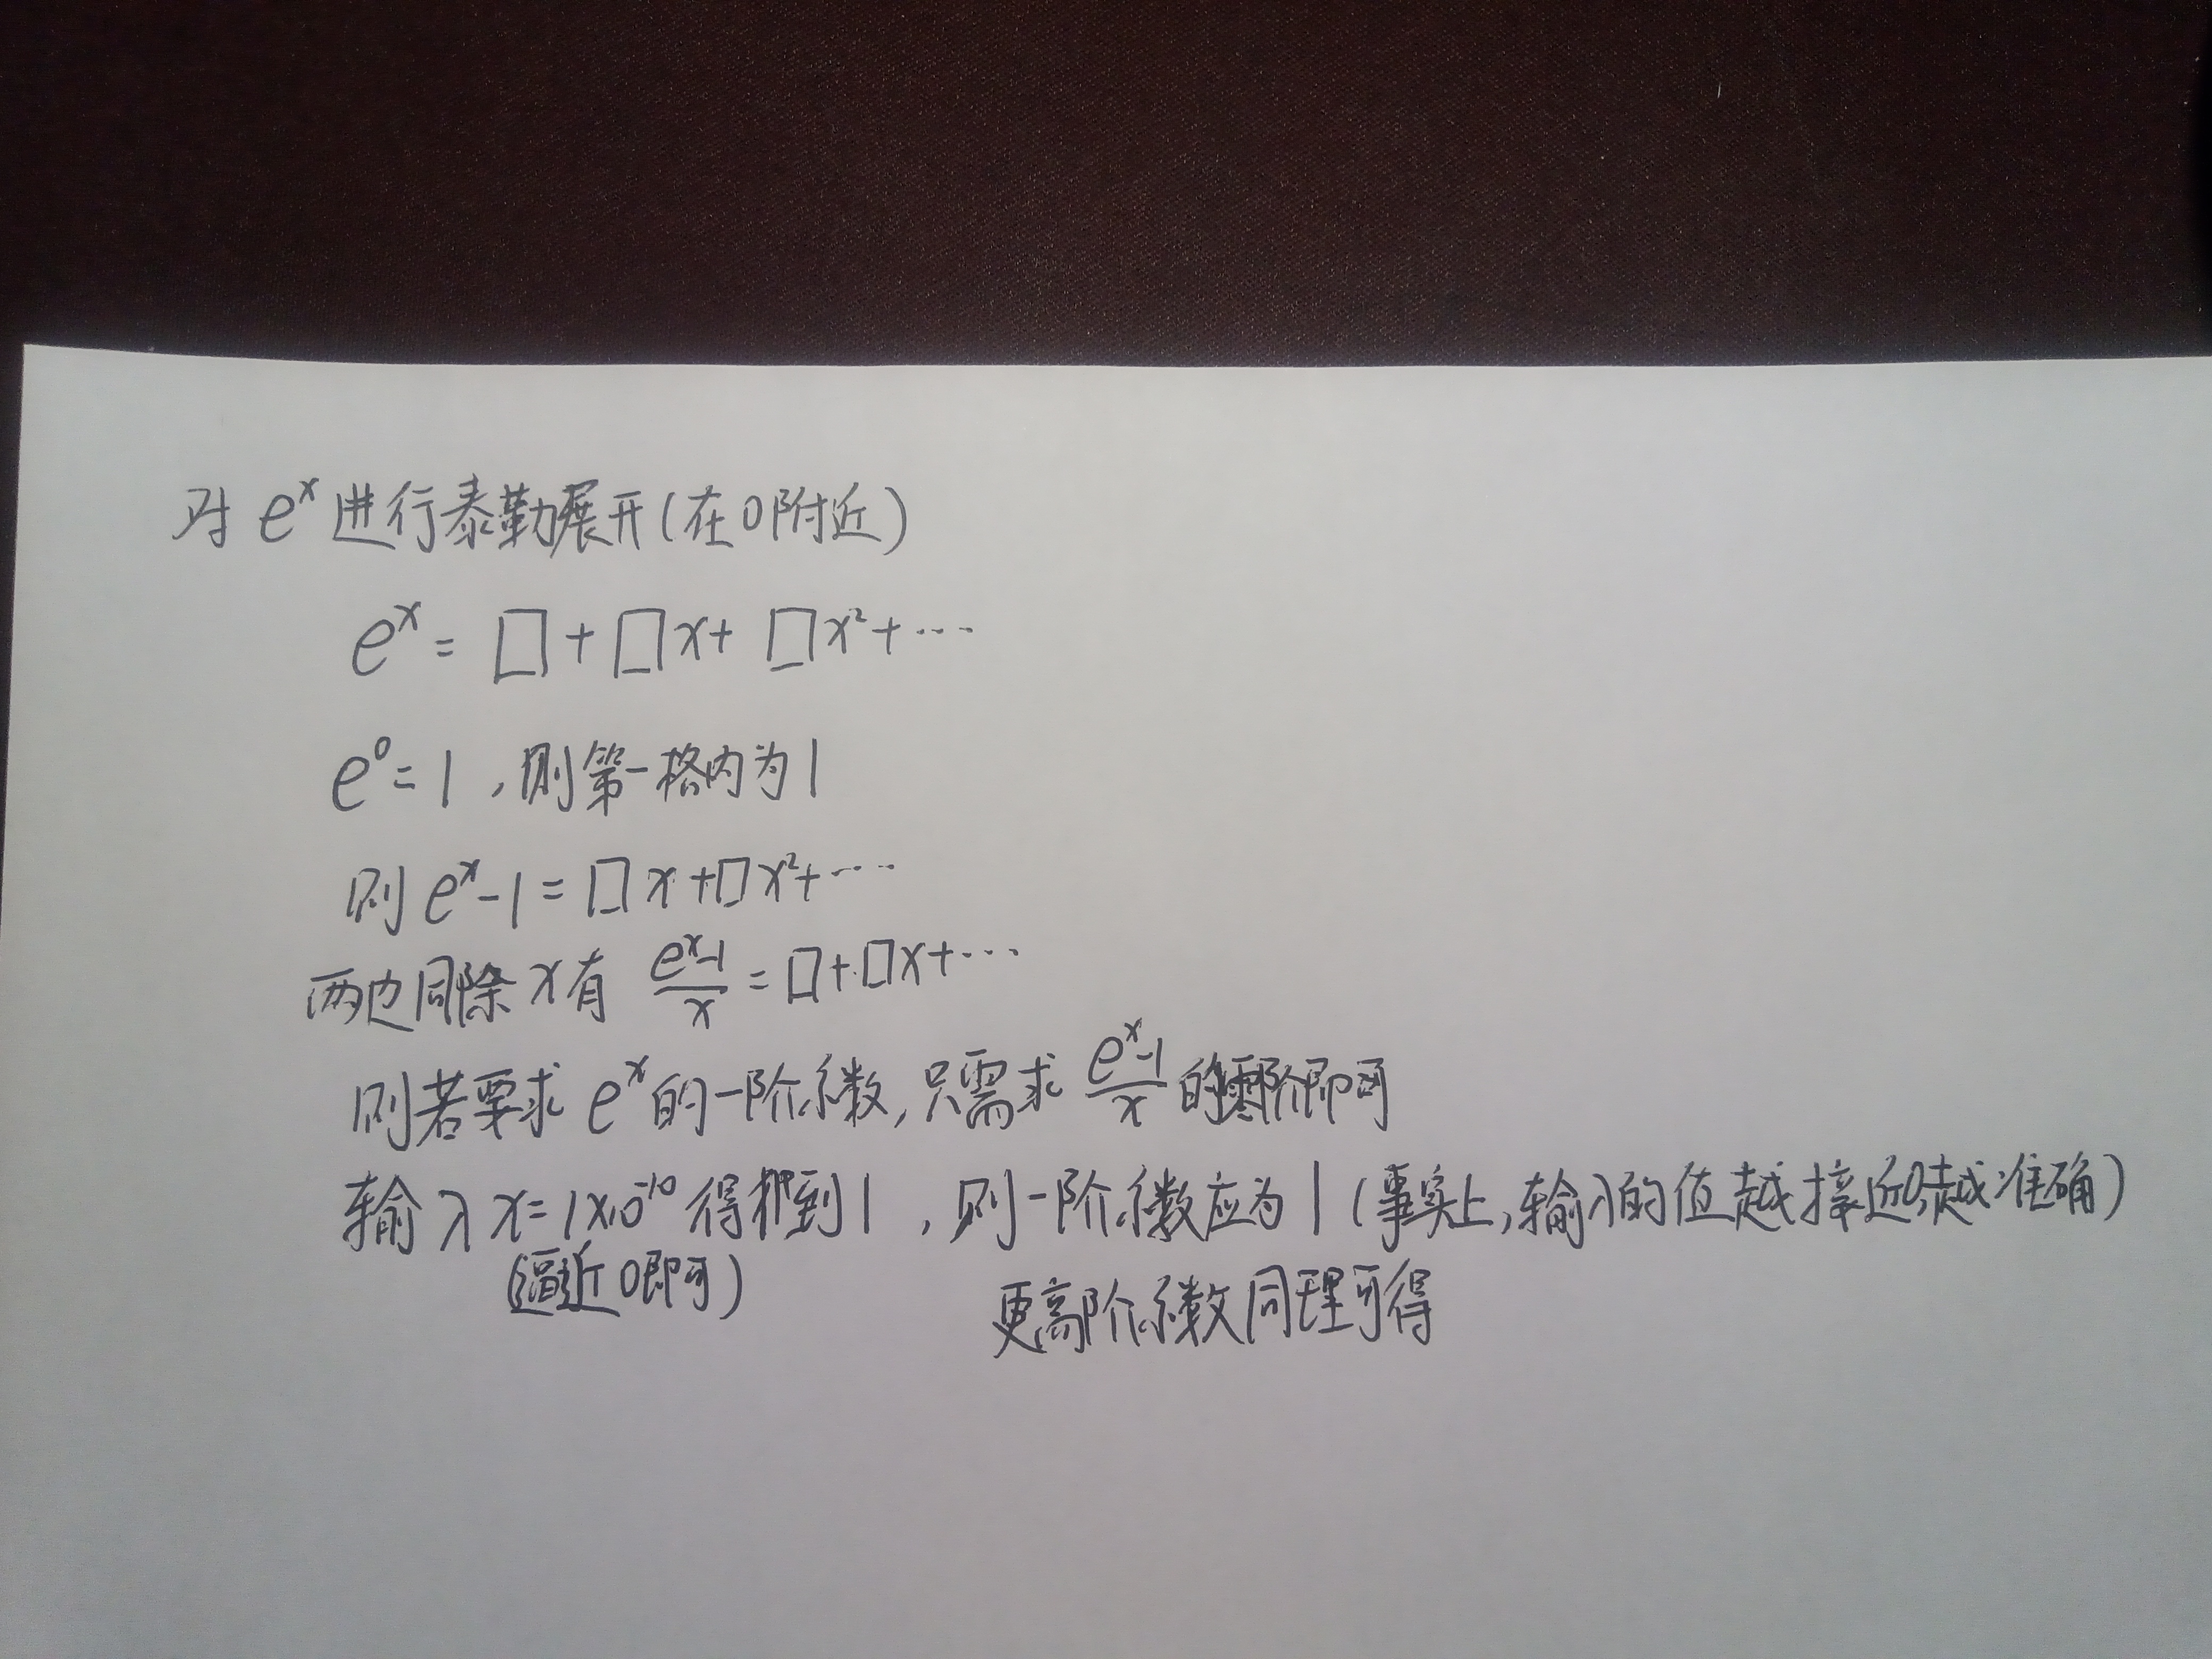 对 eˣ 进行泰勒展开(在0附近)
eˣ = □ + □x + □x² + ⋯
e⁰ = 1 , 则第一格内为1
则 eˣ-1 = □x + □x² + ⋯
两边同除 x 有 (eˣ-1)/x = □ + □x + ⋯
则若要求 eˣ 的一阶系数, 只需求 (eˣ-1)/x 的零阶即可
输入 x = 1×10⁻¹⁰ 得到1 , 则一阶系数应为1 (事实上, 输入的值越接近0,越准确)
(逼近0即可)
更高阶系数同理可得